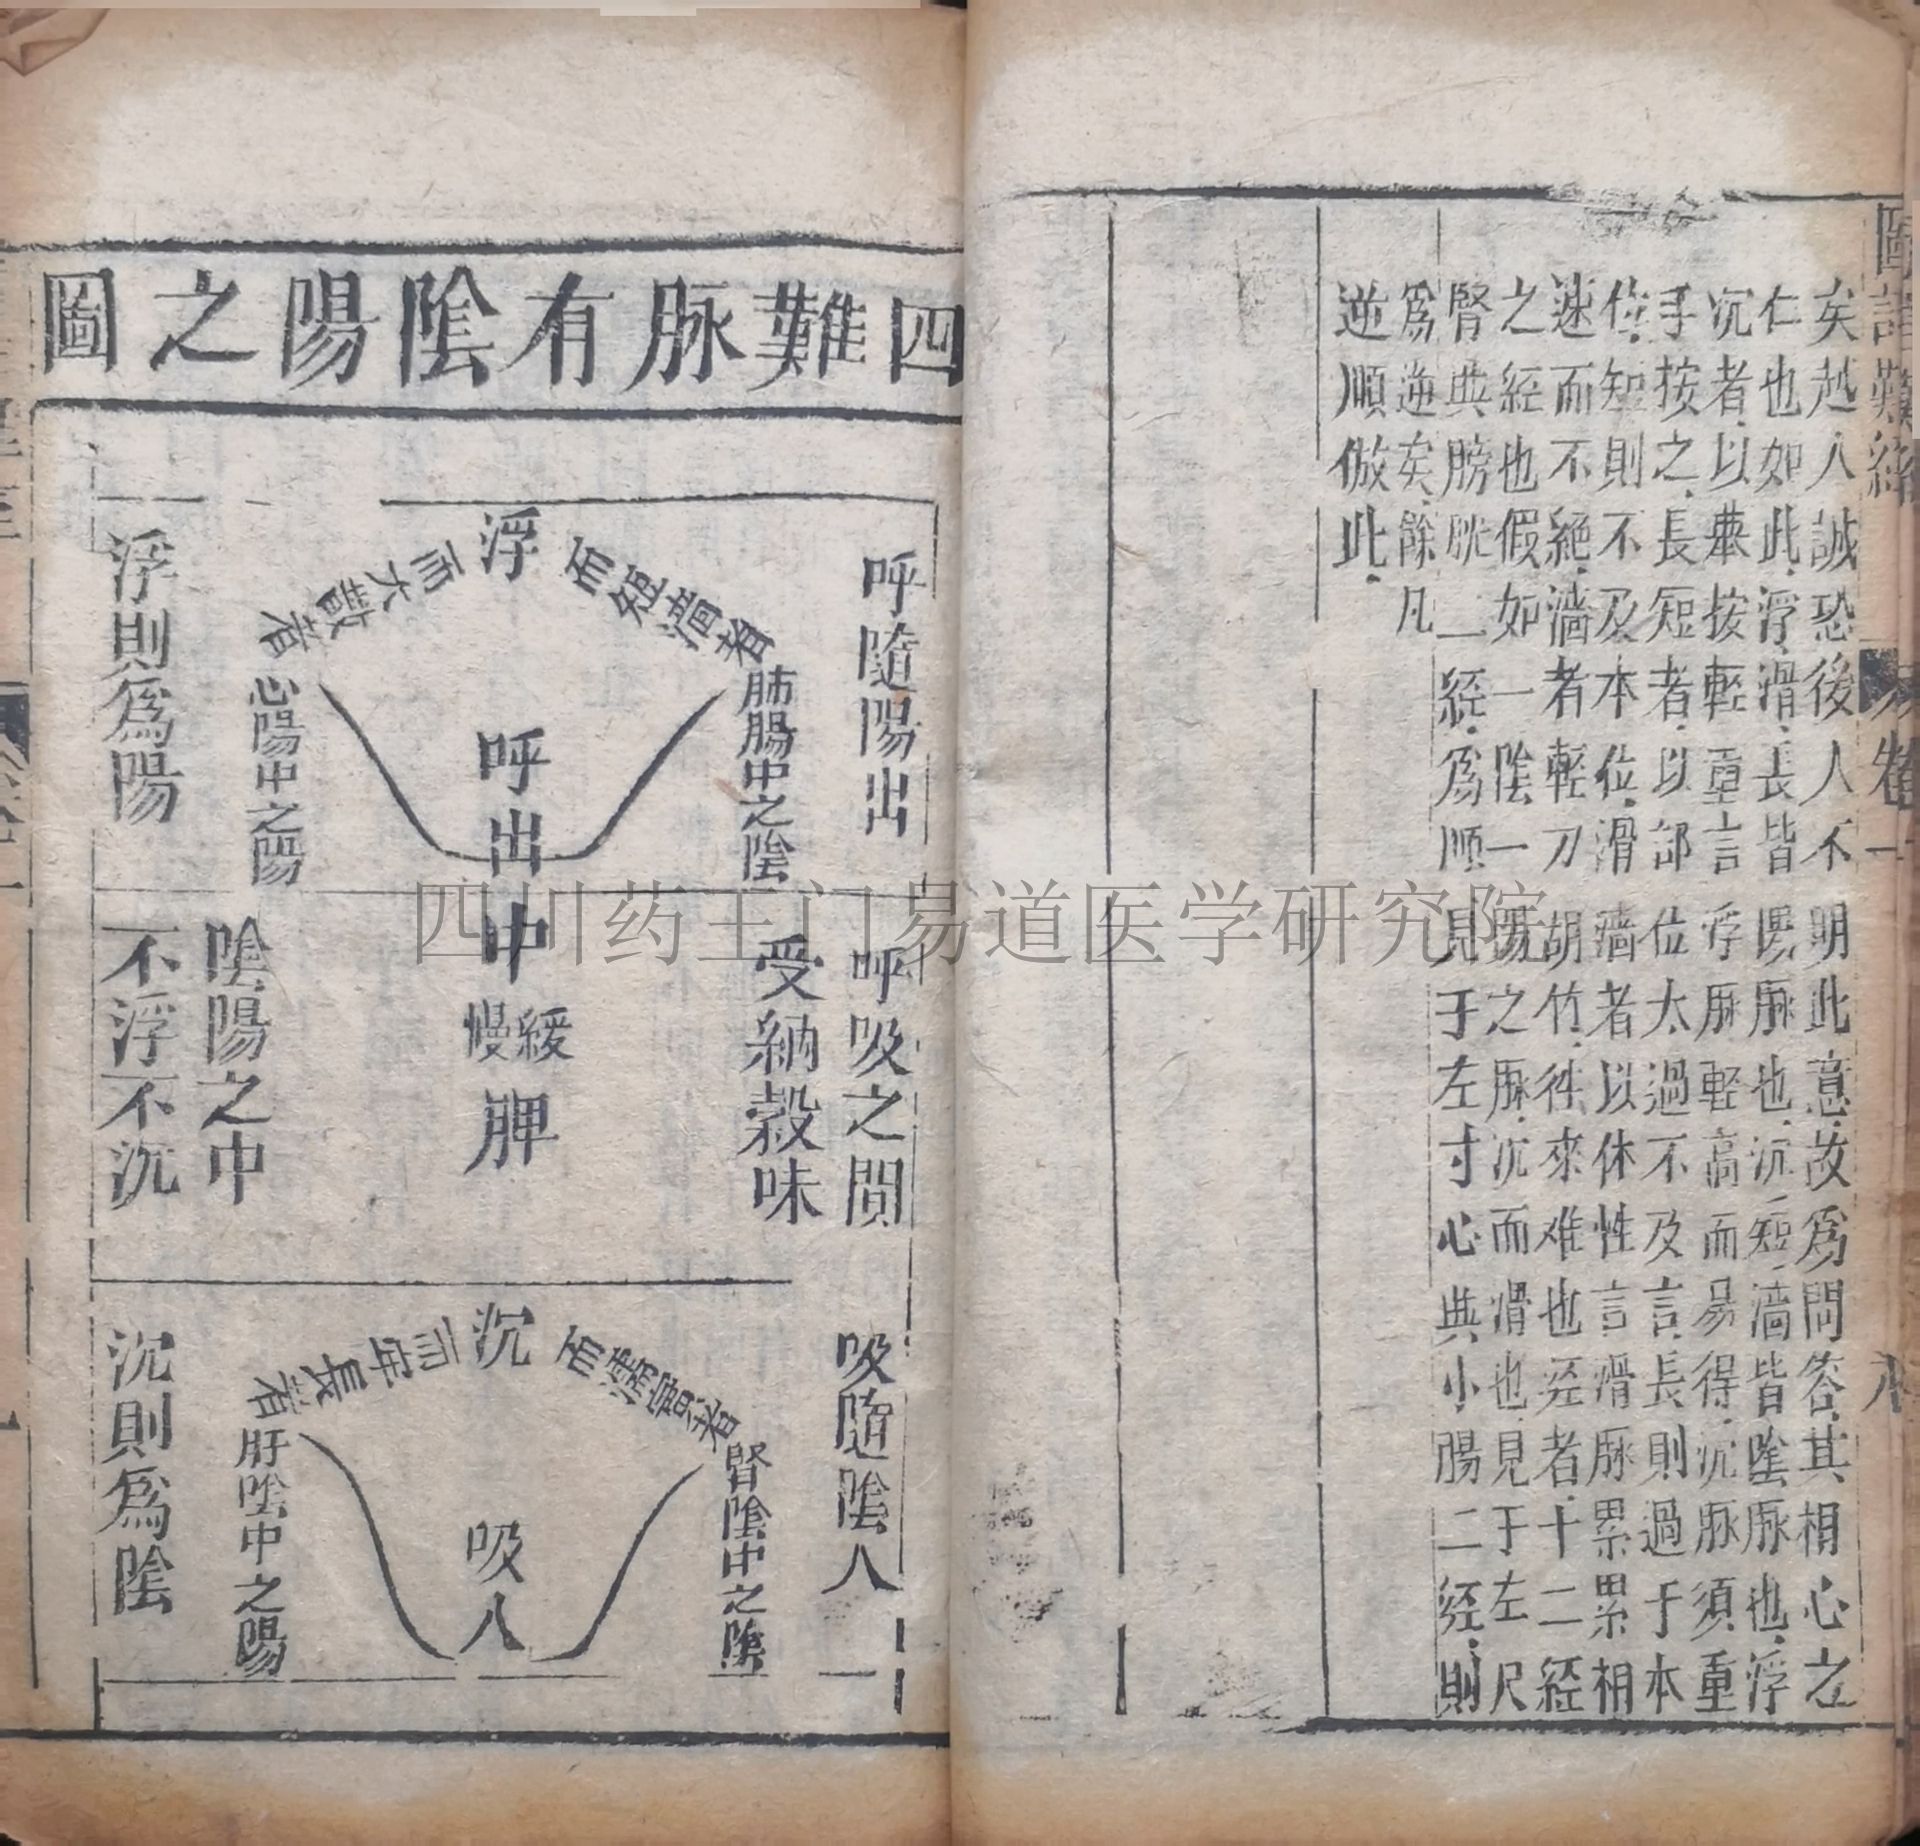 圖註難經
卷一
八
矣越人誠恐後人不明此意故爲問答其相心之
仁也如此浮滑長皆陽脉也沉短濇皆陰脉也浮
沉者以舉按輕重言浮脉輕高而易得沉脉須重
手按之長短者以部位太過不及言長則過于本
位短則不及本位滑濇者以休性言滑脉累累相
速而不絕濇者輕刀胡竹徃來难也逕者十二經
之經也假如一陰一陽之脉沉而滑也見于左尺
腎與膀胱二經爲順見于左寸心與小腸二經則
爲逆矣餘凡
逆順倣此
四難脉有陰陽之圖
呼隨陽出
浮
而短濇者
肺腸中之陰
而大散者
心陽中之陽
呼出
浮則爲陽
呼吸之間
受納穀味
中
緩慢
脾
陰陽之中
不浮不沉
吸隨陰入
沉
而濡實者
腎陰中之陰
而牢長者
肝陰中之陽
吸入
沉則爲陰
四川药王门易道医学研究院